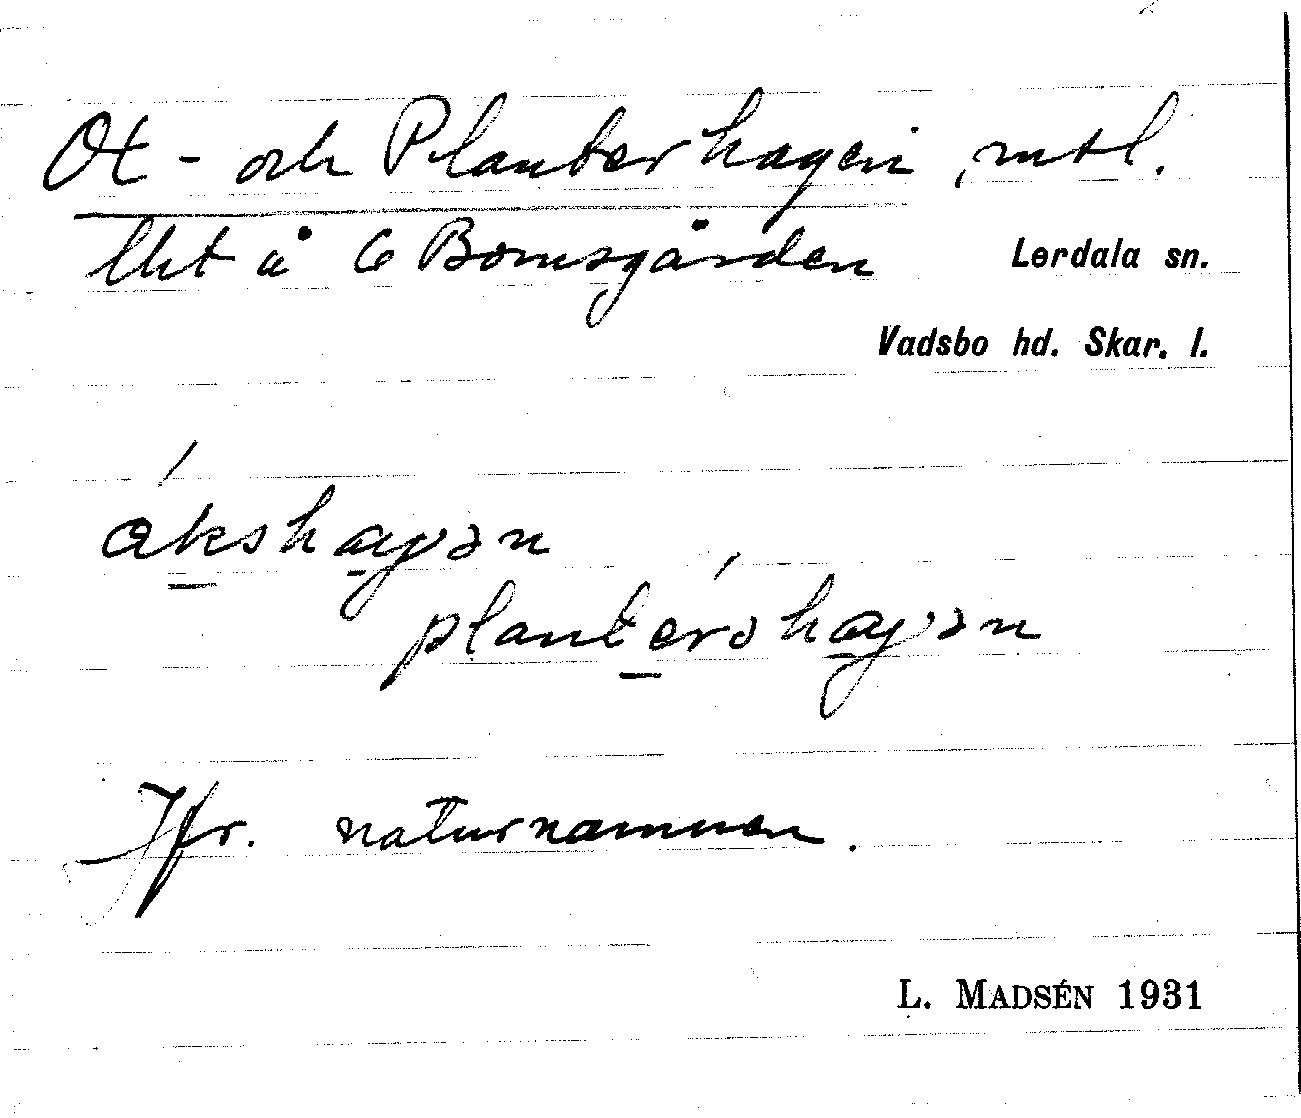 Ox- och Planterhagen, mtl.
lht å 6 Bomsgården Lerdala sn.
Vadsbo hd. Skar. l.
åkshagən
plantershagən
Jfr. naturnamnen.
L. MADSÉN 1931